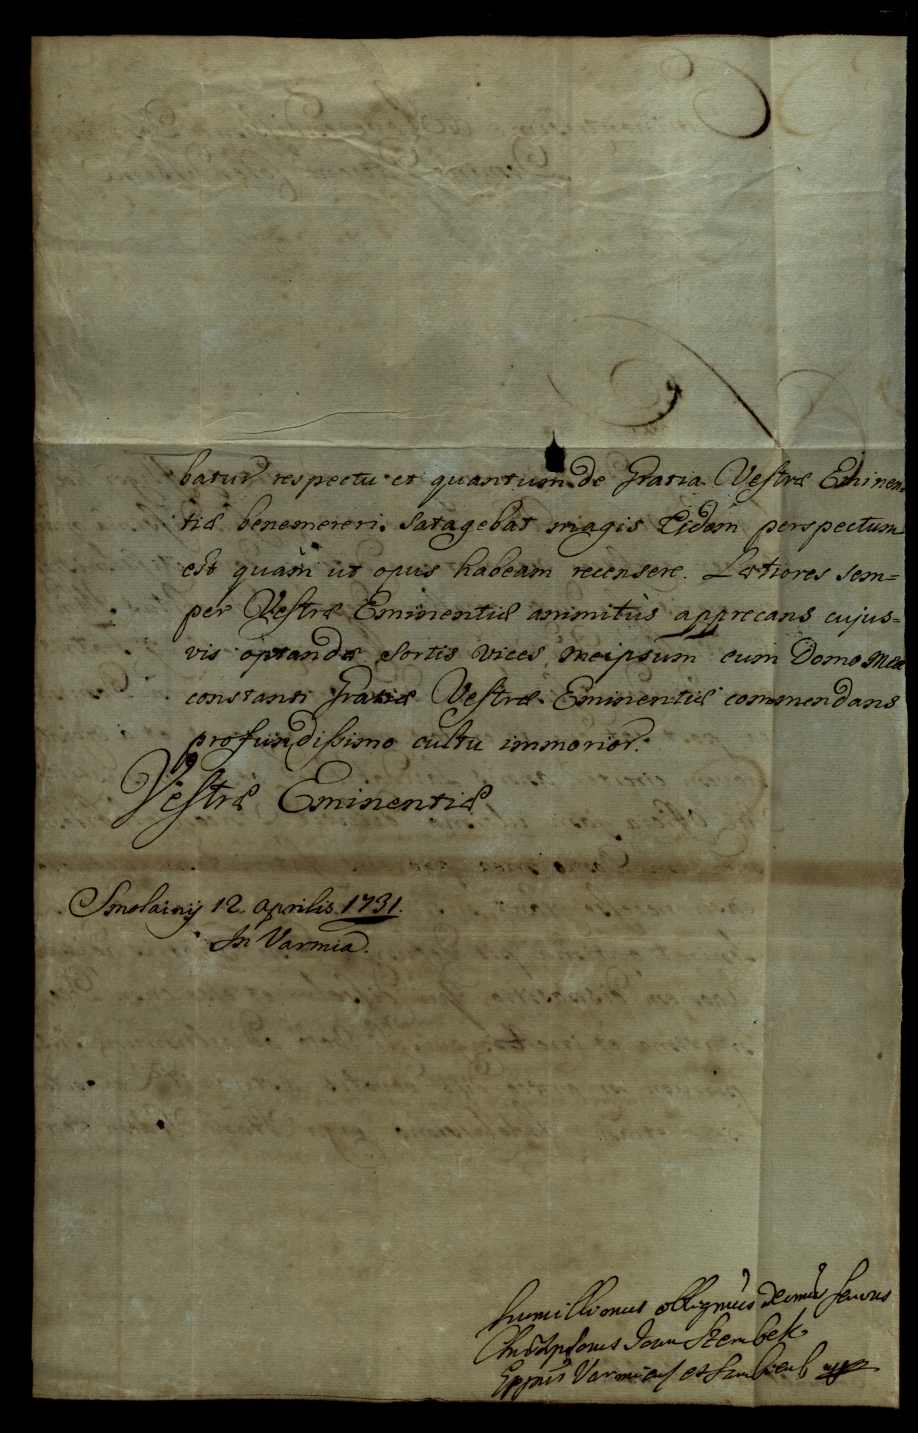 batur respectu et quantum de Gratia Vestræ Eminen=
tiæ benemereri satagebat magis Eidem perspectum
est quàm ut opus habeam recensere. Lætiores sem=
per Vestræ Eminentiæ animitùs apprecans cujus=
vis optandæ sortis vices, meipsum cum Domo mea
constanti Gratiæ Vestræ Eminentiæ commendans
profundissimo cultu immorior.
Vestræ Eminentiæ
Smolainÿ 12 aprilis 1731.
In Varmia.
humillimus servus
Joan Szembek
Eppus Varmien et Sambien